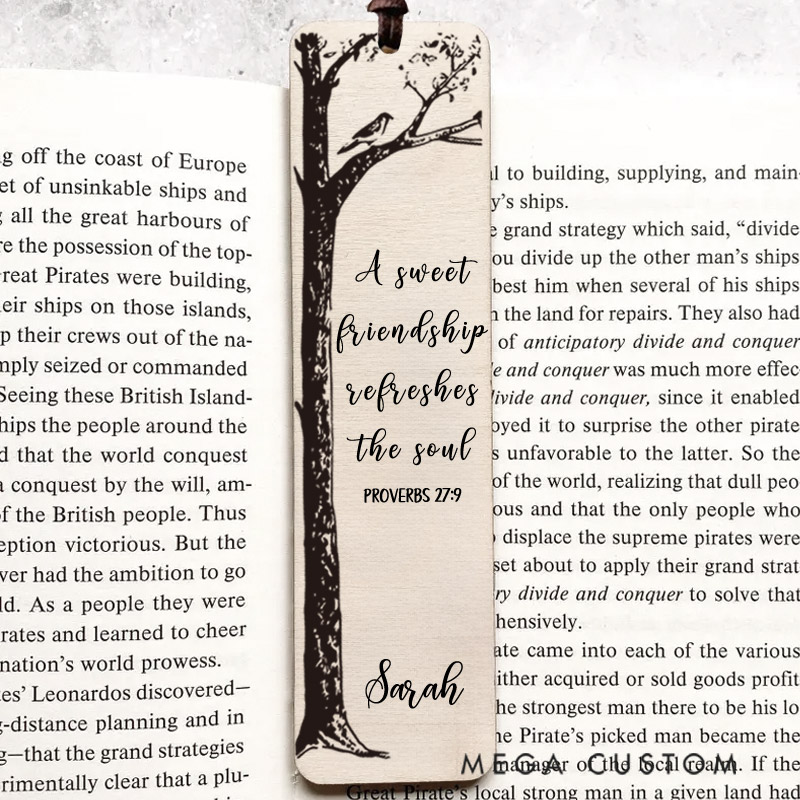 g off the coast of Europe
et of unsinkable ships and
all the great harbours of
re the possession of the top-
reat Pirates were building,
eir ships on those islands,
p their crews out of the na-
mply seized or commanded
Seeing these British Island-
hips the people around the
d that the world conquest
a conquest by the will, am-
of the British people. Thus
eption victorious. But the
ver had the ambition to go
ld. As a people they were
rates and learned to cheer
nation's world prowess.
es' Leonardos discovered—
g-distance planning and in
g—that the grand strategies
rimentally clear that a plu-
A sweet
friendship
refreshes
the soul
PROVERBS 27:9
Sarah
l to building, supplying, and main-
y's ships.
e grand strategy which said, “divide
ou divide up the other man's ships
best him when several of his ships
n the land for repairs. They also had
of anticipatory divide and conquer
e and conquer was much more effec-
divide and conquer, since it enabled
oyed it to surprise the other pirate
s unfavorable to the latter. So the
of the world, realizing that dull peo
ous and that the only people who
displace the supreme pirates were
set about to apply their grand strat
ry divide and conquer to solve that
hensively.
ate came into each of the various
ither acquired or sold goods profit
he strongest man there to be his lo
he Pirate's picked man became the
manager of the local realm. If the
Great Pirate's local strong man in a given land had
MEGA CUSTOM